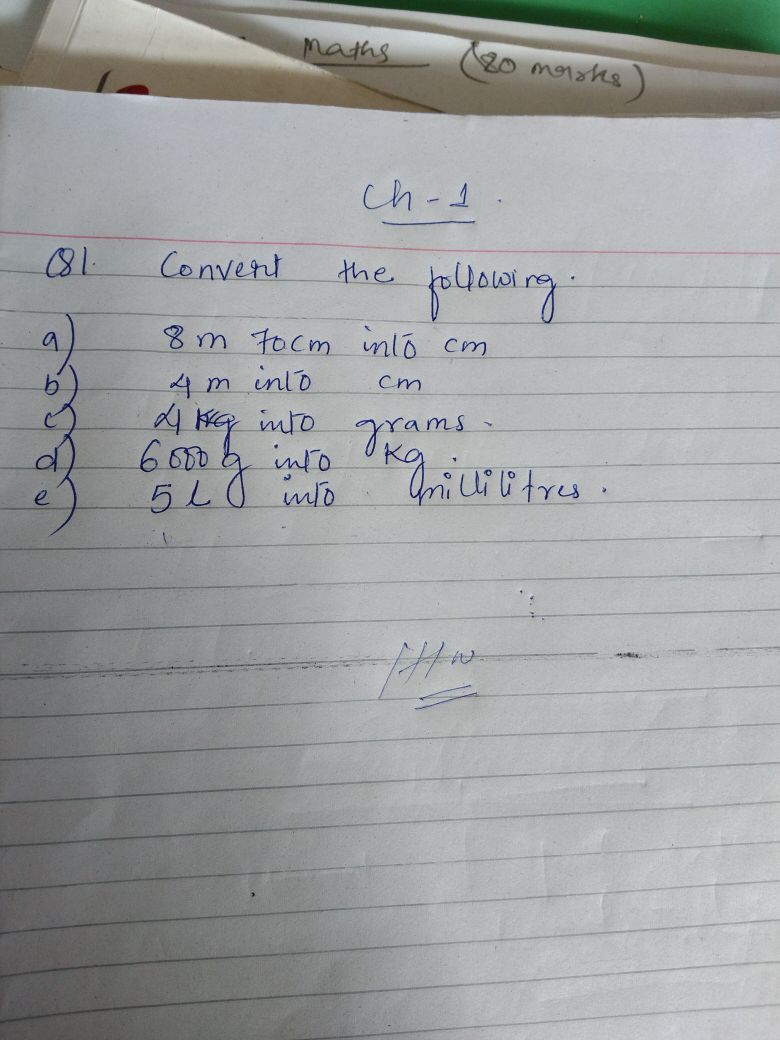 Maths (80 marks)
Ch - 1.
Q1. Convert the following.
a) 8 m 70cm into cm
b) 4 m into cm
c) 4 kg into grams.
d) 6000 g into Kg.
e) 5 L into millilitres.
HW